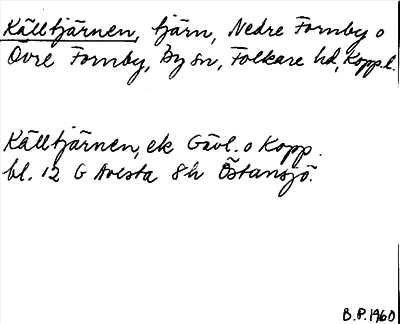 Källtjärnen, tjärn, Nedre Fornby o
Övre Fornby, By sn, Folkare hd, Kopp.l.
Källtjärnen, ek Gävl. o Kopp.
bl. 12 G Avesta 8h Östansjö.
B.P. 1960